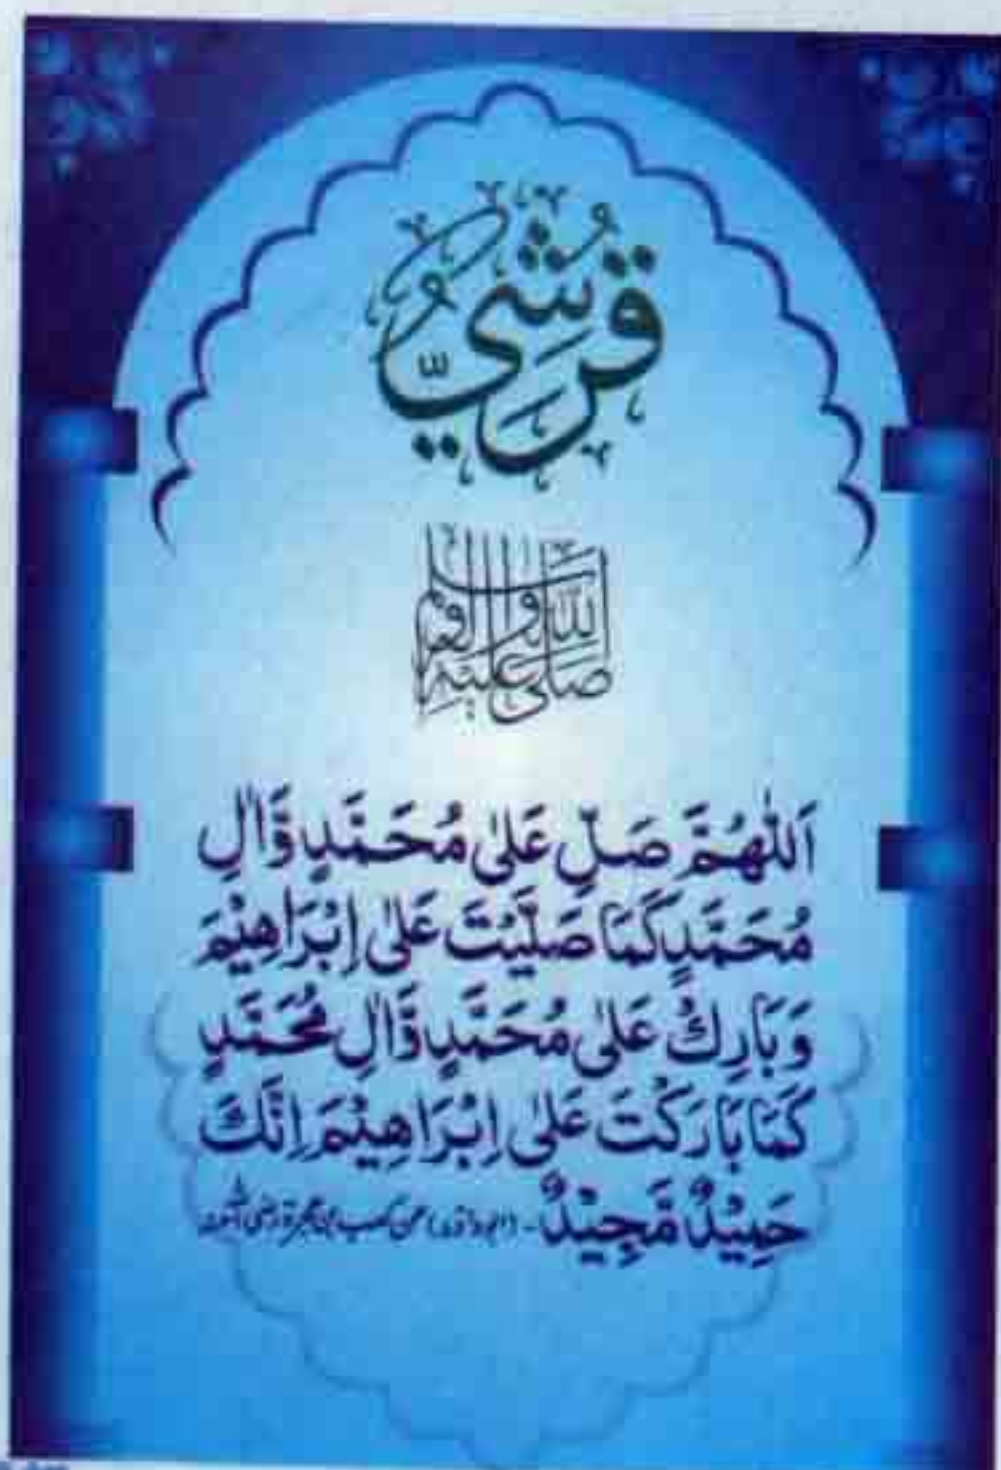 قُرَشِيٌّ
صَلَّى اللهُ عَلَيْهِ وَاٰلِهٖ وَسَلَّم
اَللّٰهُمَّ صَلِّ عَلٰى مُحَمَّدٍ وَّاٰلِ
مُحَمَّدٍ كَمَا صَلَّيْتَ عَلٰى اِبْرَاهِيْمَ
وَبَارِكْ عَلٰى مُحَمَّدٍ وَّاٰلِ مُحَمَّدٍ
كَمَا بَارَكْتَ عَلٰى اِبْرَاهِيْمَ اِنَّكَ
حَمِيْدٌ مَّجِيْدٌ۔ (ابوداؤد) عن کعب بن عجرة رضی اللہ عنہ